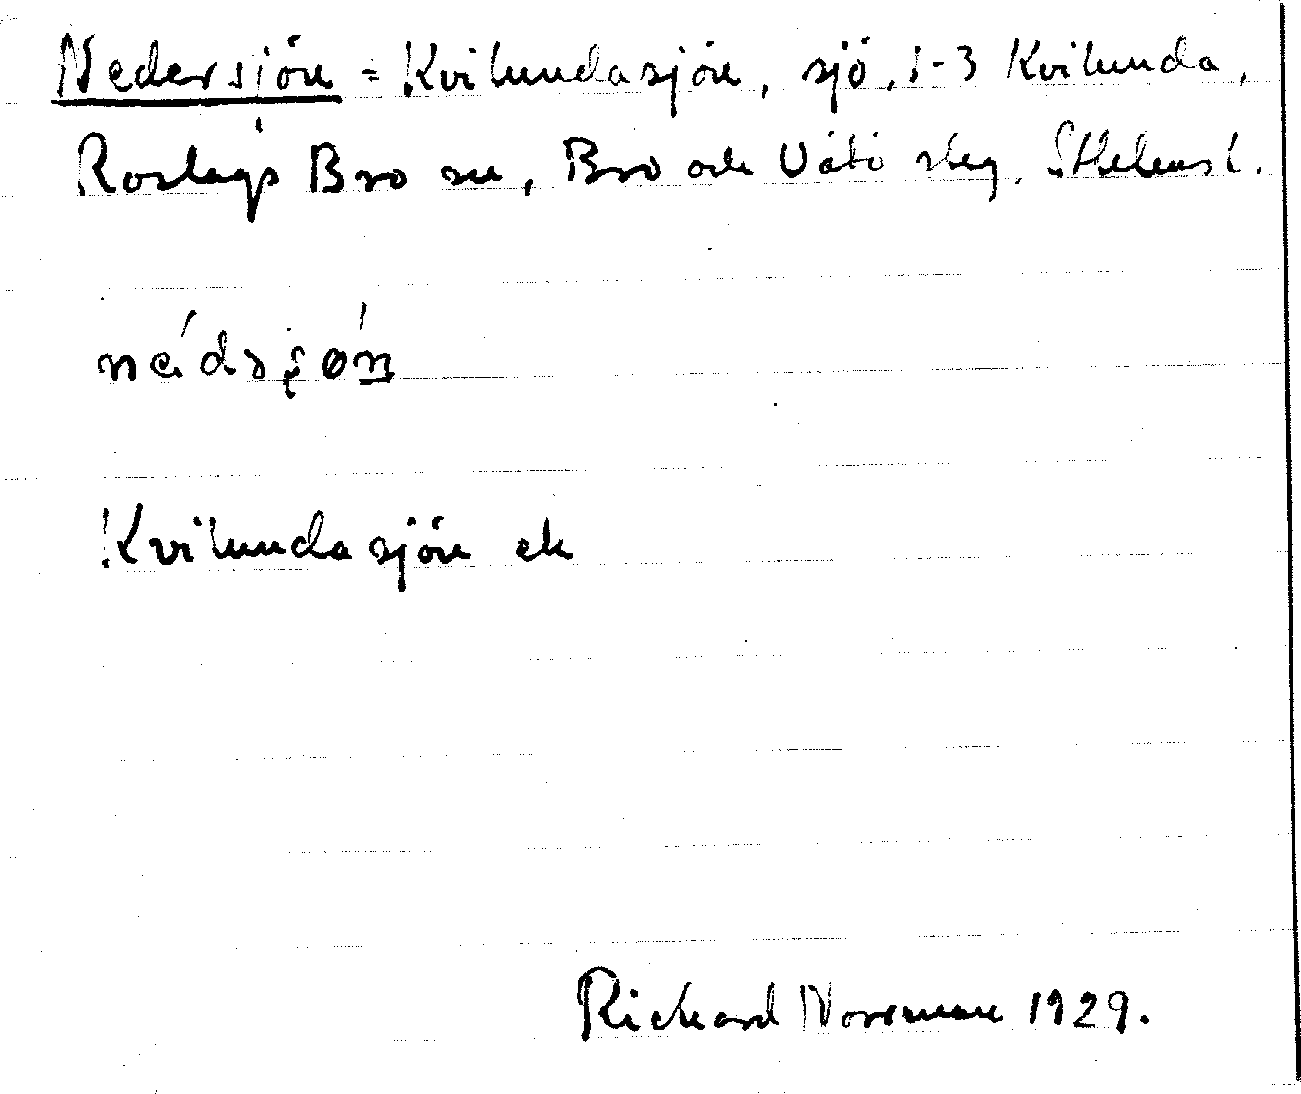 Nedersjön = Kvilundasjön, sjö, 1-3 Kvilunda,
Roslags Bro sn, Bro och Vätö skg. Sthlms l.
Kvilundasjön ek
Richard Norrman 1929.